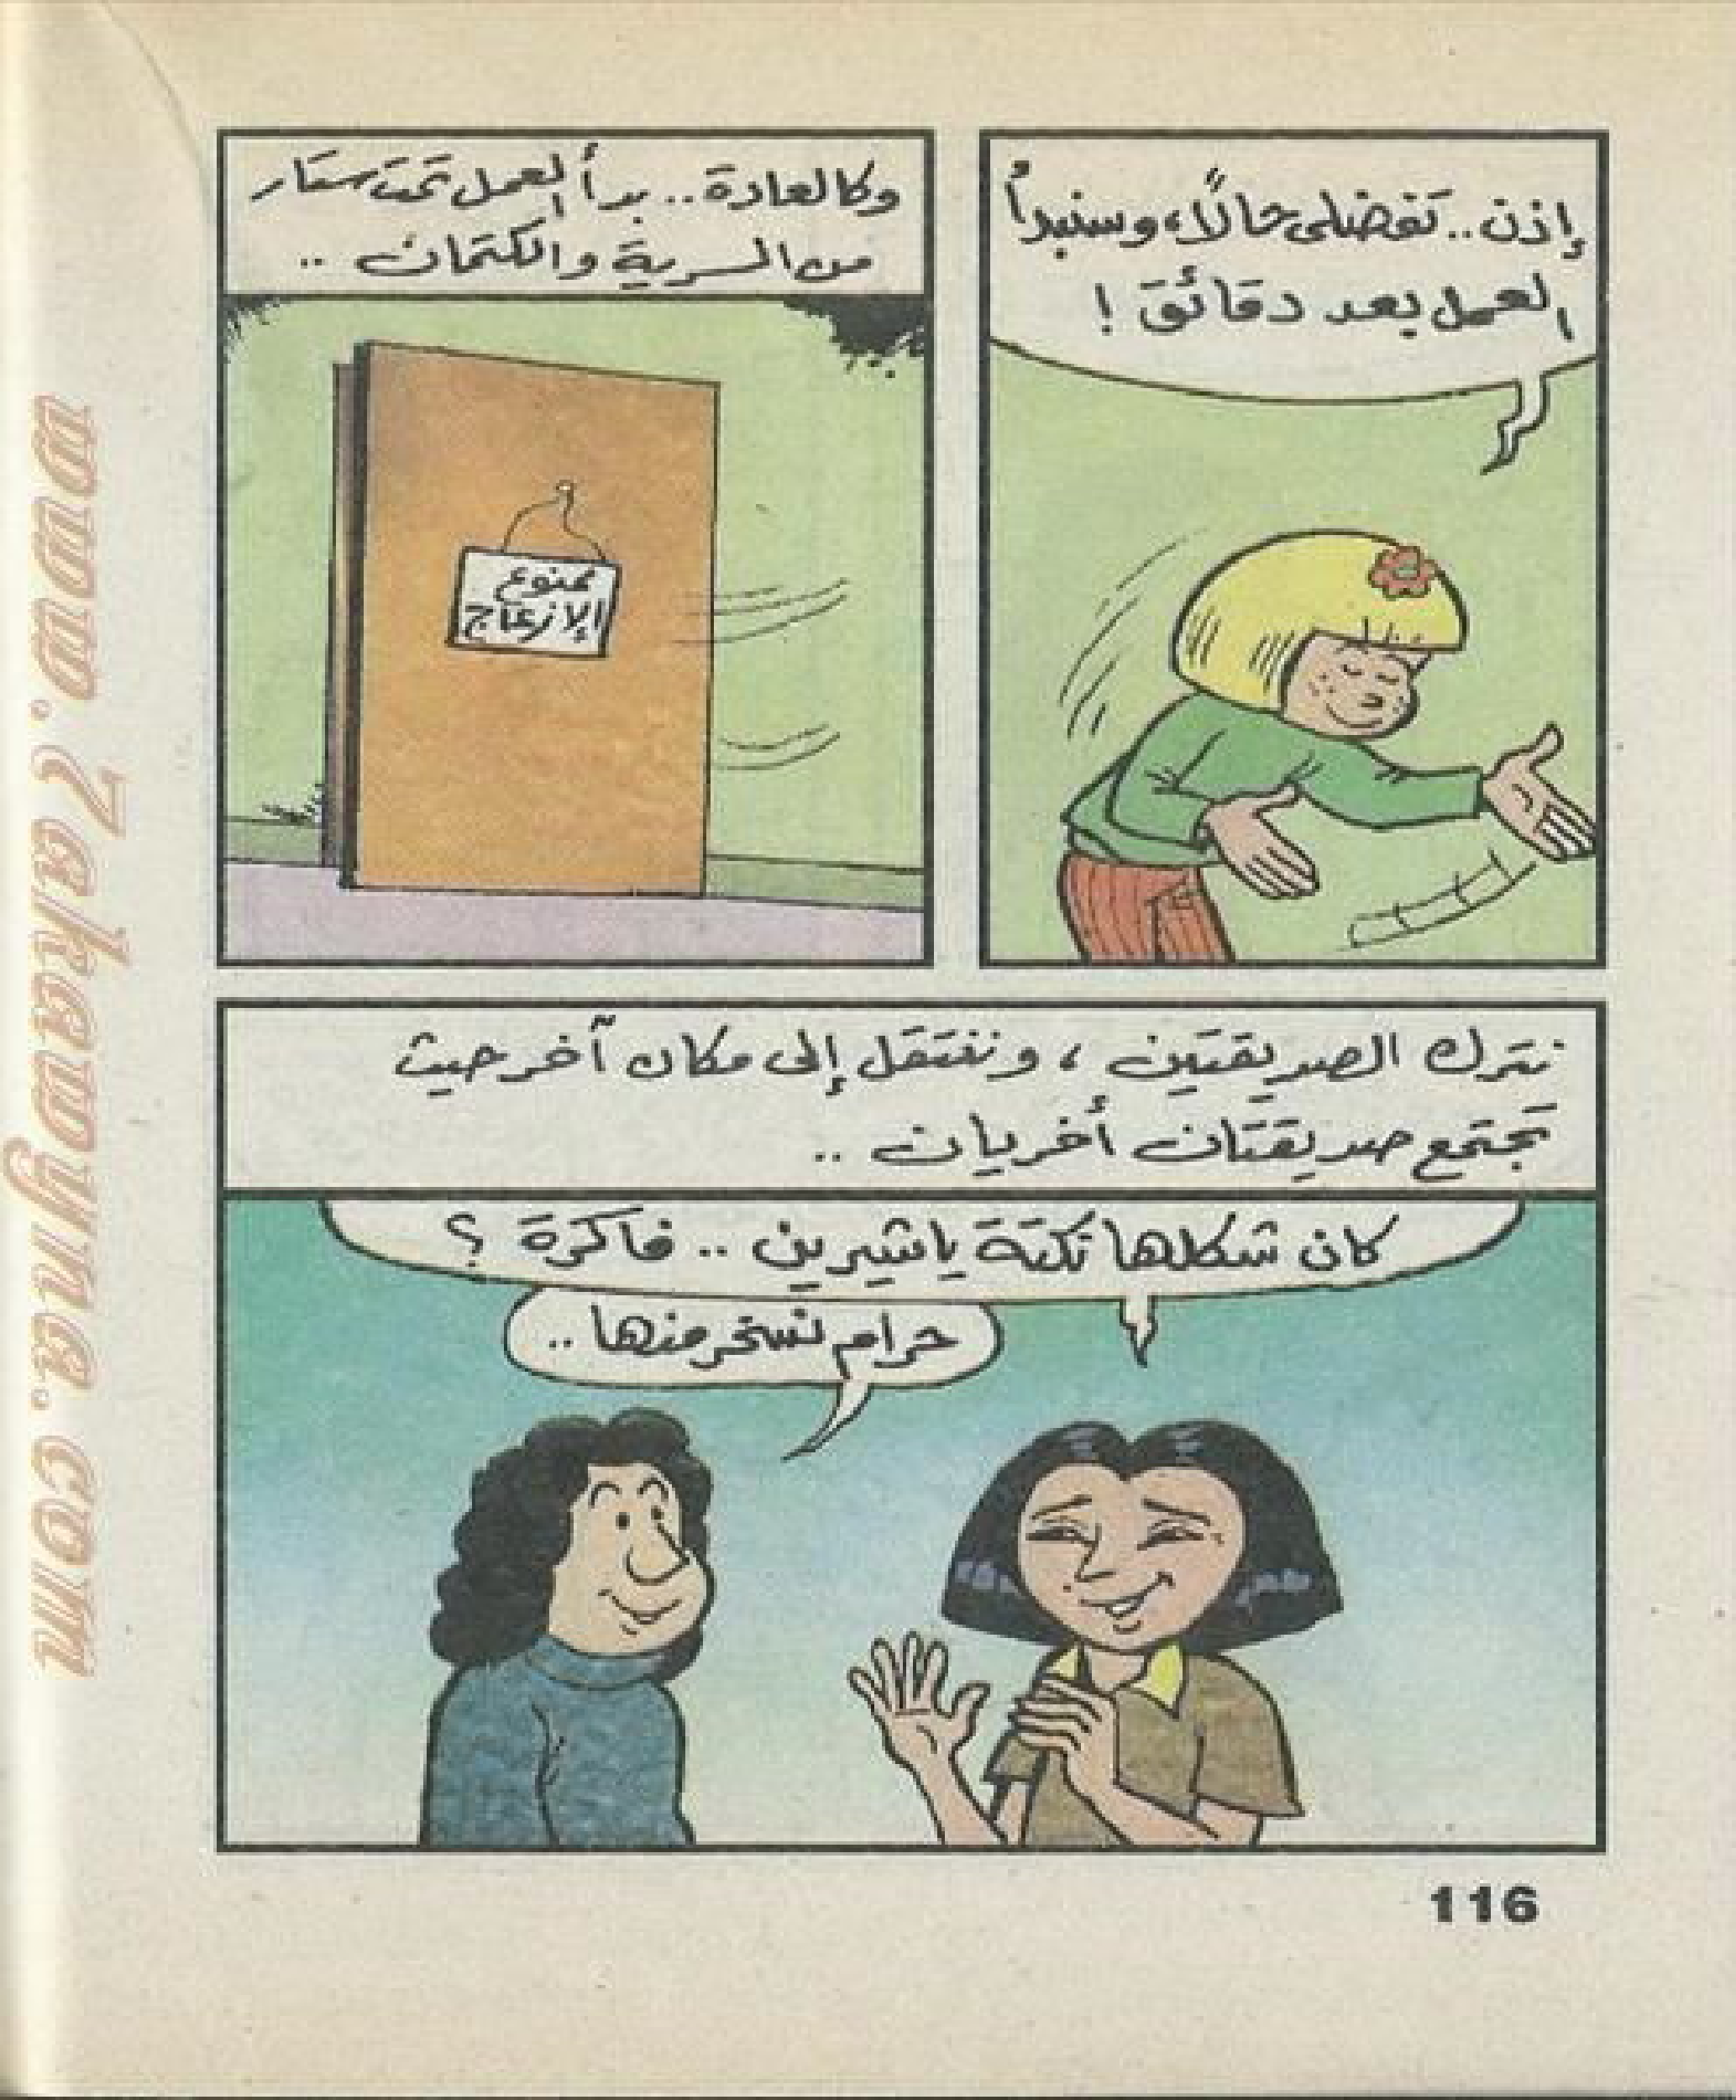 إذن.. تفضلى حالاً، وسنبدأ
العمل بعد دقائق !
وكالعادة.. بدأ العمل تحت ستار
من السرية والكتمان ..
ممنوع
الإزعاج
نترك الصديقتين ، وننتقل إلى مكان آخر حيث
تجتمع صديقتان أخريان ..
كان شكلها نكتة ياشيرين .. فاكرة ؟
حرام نسخر منها ..
116
www.7akawyna.com